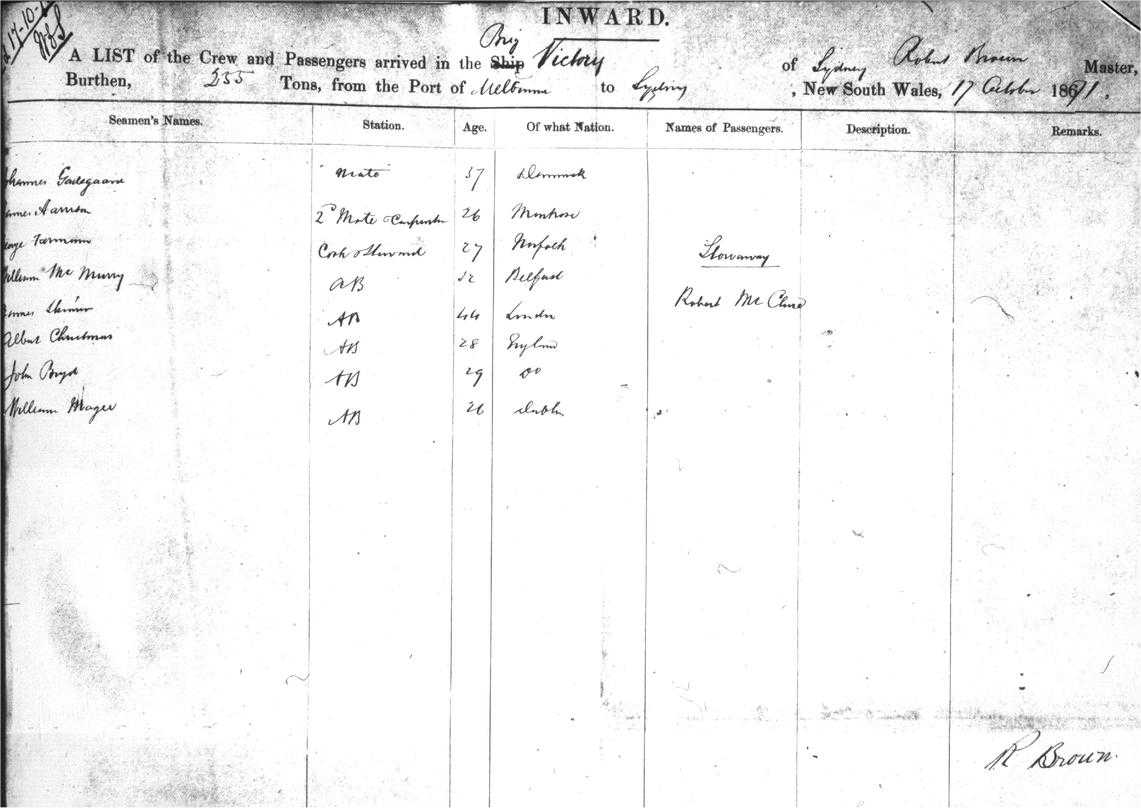 17-10-
INWARD.
Brig
A LIST of the Crew and Passengers arrived in the Ship Victory of Sydney Robert Brown Master,
Burthen, 255 Tons, from the Port of Melbourne to Sydney, New South Wales, 17 October 1871.
Seamen's Names. Station. Age. Of what Nation. Names of Passengers. Description. Remarks.
Mate 37 Denmark
2d Mate & Carpenter 26 Montrose
Cook & Steward 27 Norfolk Stowaway
William Mc Murry AB 32 Belfast
Robert Mc Clure
AB 44 London
Albert Christmas AB 28 England
John Boyd AB 29 Do
William Mager AB 26 Dublin
R Brown.